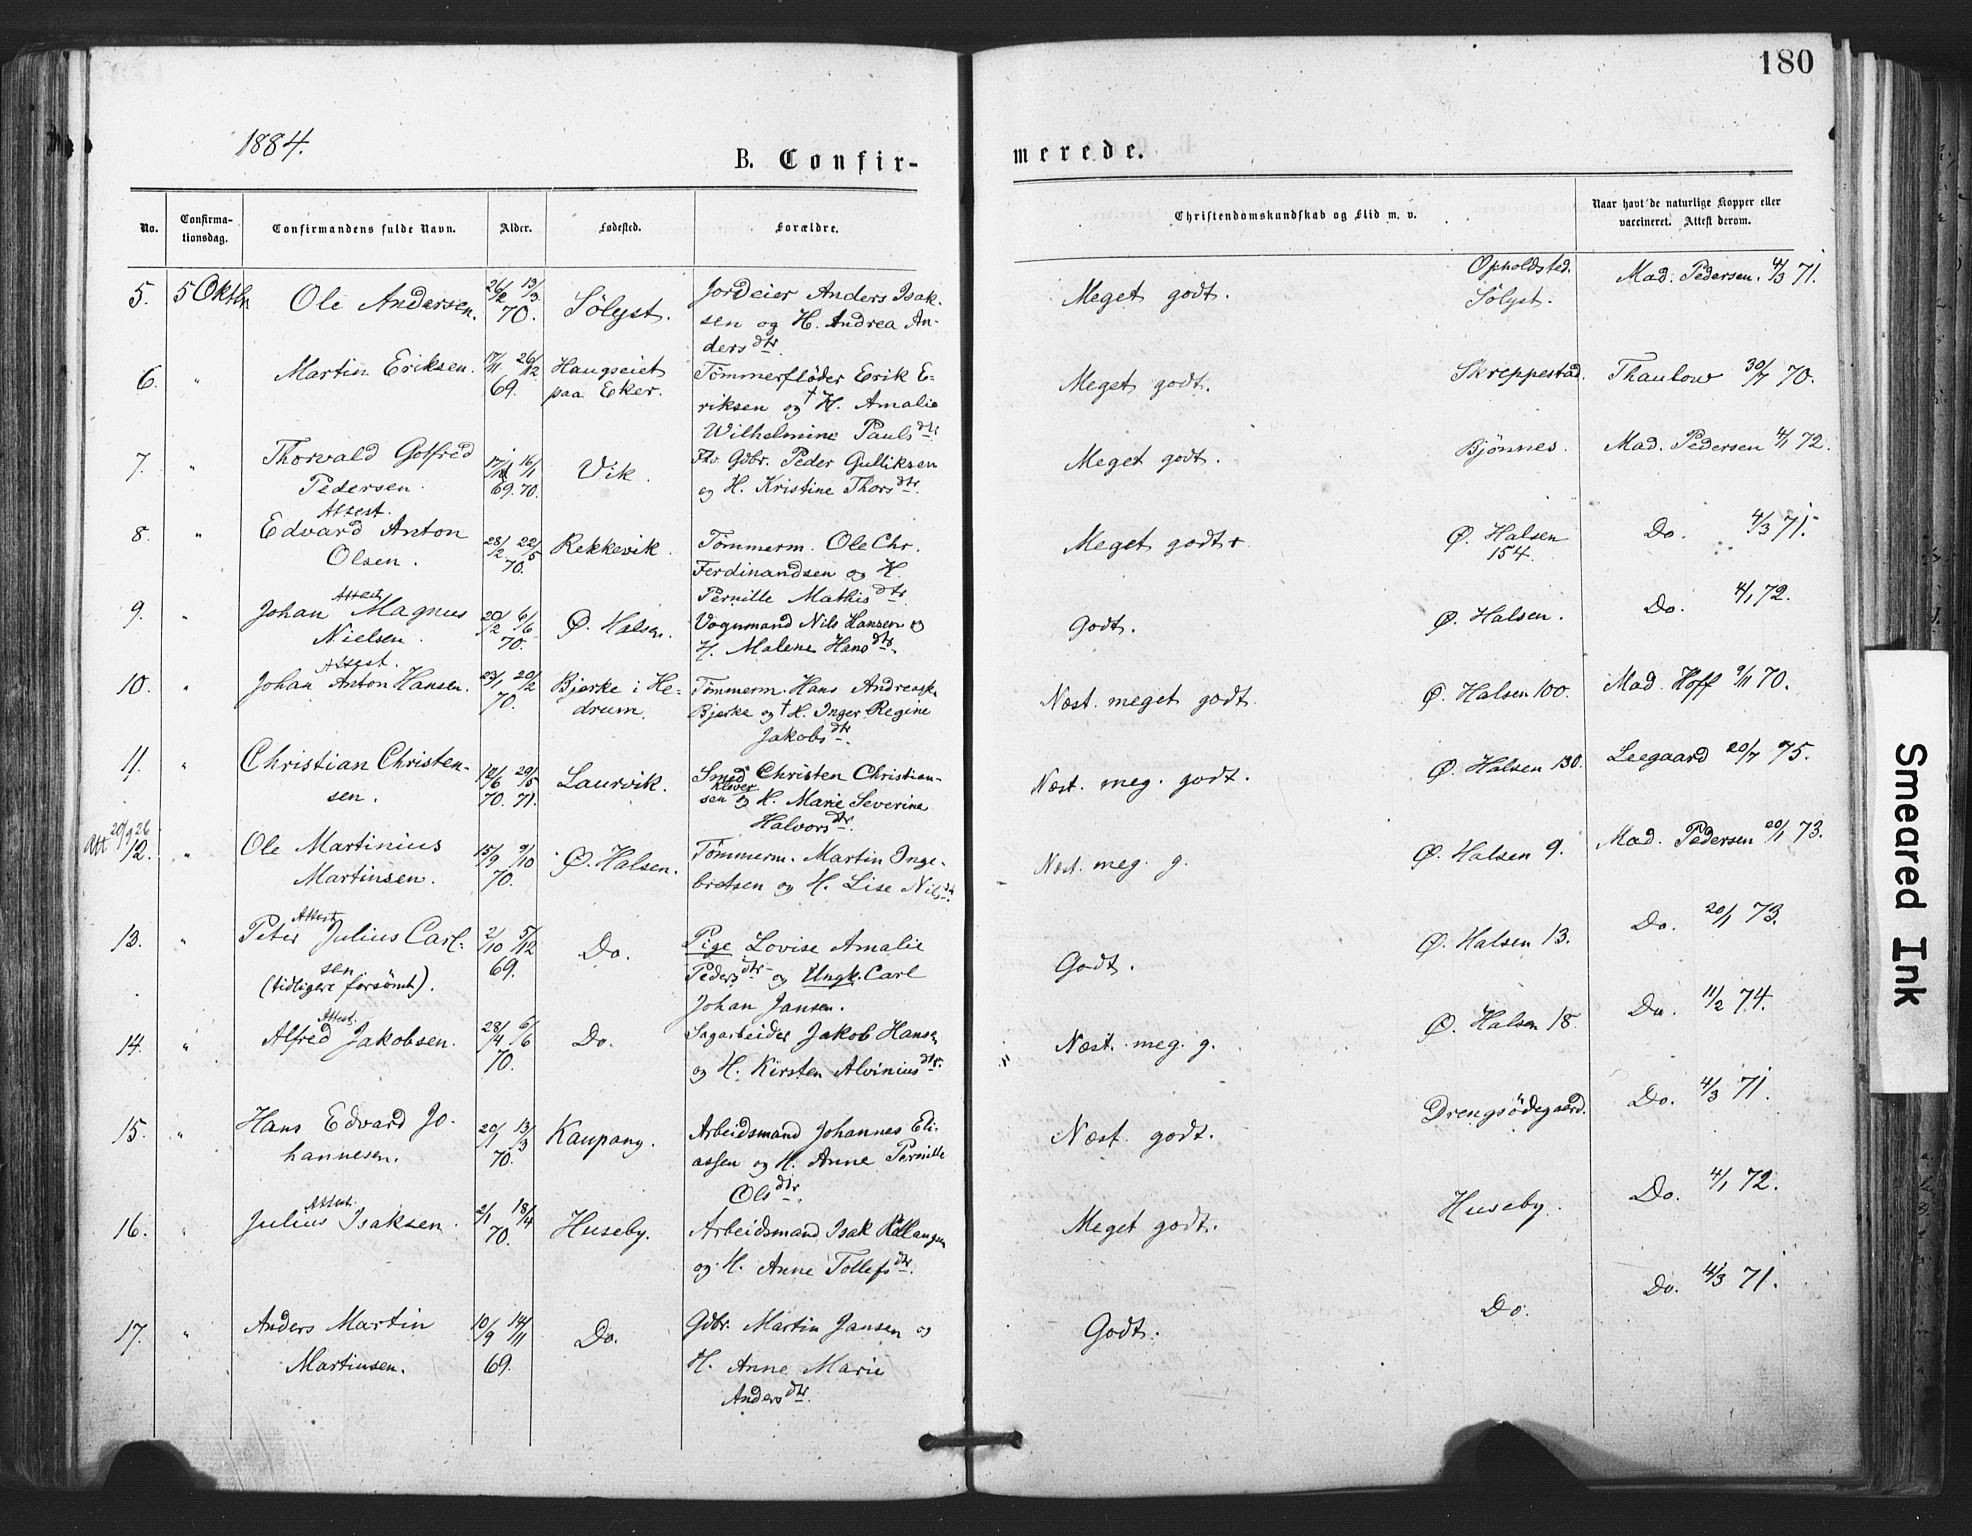 180
1884.
B. Confir-
merede.
No.
Confirma-
tionsdag.
Confirmandens fulde Navn.
Alder.
Fødested.
Forældre.
Christendomskundskab og Flid m. v.
Naar havt de naturlige Kopper eller
vaccineret. Attest derom.
5. 5 Oktbr. Ole Andersen. 26/2 13/3 70. Sölyst. Jordeier Anders Isak-
sen og H. Andrea An-
ders dtr.
Meget godt. Opholdsted. Sölyst. Mad. Pedersen. 4/3 71.
6. " Martin Eriksen. 17/11 26/12 69. Haugseiet
paa Eker.
Tömmerfløder Erik E-
riksen og † H. Amalie
Wilhelmine Pauls dtr.
Meget godt. Skreppestad. Thaulow 30/7 70.
7. " Thorvald Gotfred
Pedersen.
69. 70. Vik.
Gdbr. Peder Gulliksen
og H. Kristine Thors dtr.
Meget godt. Bjönnes. Mad. Pedersen 4/1 72.
8. " Attest.
Edvard Anton
Olsen.
28/2. 22/5 70. Rekkevik.
Tømmerm. Ole Chr.
Ferdinandsen og H.
Pernille Mathis dtr.
Meget godt Ø. Halsen
154.
Do. 4/3 71.
9. " Attest
Johan Magnus
Nielsen.
20/2 6/6 70. Ø. Halsen.
Vognmand Nils Hansen og
H. Malene Hans dtr.
Godt. Ø. Halsen. Do. 4/1 72.
10. " Attest.
Johan Anton Hansen. 20/2 70. Bjerke i He-
drum.
Tømmerm. Hans Andreas
Bjerke og † H. Inger Regine
Jakobs dtr.
Næst. meget godt Ø. Halsen 100. Mad. Hoff 9/11 70.
11. " Christian Christen-
sen.
12/6 29/5 70. 71. Laurvik.
Smed Christen Christian-
sen og H. Marie Severine
Halvors dtr.
Næst. meg. godt. Ø. Halsen 130. Leegaard 20/7 75.
Att 20/9 26
12. " Ole Martinius
Martinsen.
15/9 9/10 70. Ø. Halsen.
Tømmerm. Martin Inge-
bretsen og H. Lise Nils dtr.
Næst. meg. g. Ø. Halsen 9. Mad. Pedersen 20/1 73.
13. " Attest
Peter Julius Carl-
sen
(tidligere forsömt).
2/10 5/12 69. Do.
Pige Lovise Amalie
Peders dtr og Ungk. Carl
Johan Jansen.
Godt. Ø. Halsen 13. Do. 20/1 73.
14. " Attest.
Alfred Jakobsen. 28/4 6/6 70. Do.
Sagarbeider Jakob Hansen
og H. Kirsten Alvinius dtr.
Næst. meg. g. Ø. Halsen 18. Do. 11/2 74.
15. " Hans Edvard Jo-
hannesen.
20/1 13/3 70. Kaupang.
Arbeidsmand Johannes Eli-
assen og H. Anne Pernille
Ols dtr.
Næst. godt. Drengsödegaard. Do. 4/3 71.
16. " Attest.
Julius Isaksen. 2/1 18/4 70. Huseby.
Arbeidsmand Isak
og H. Anne Tollefs dtr.
Meget godt. Huseby. Do. 4/1 72.
17. " Anders Martin
Martinsen.
10/9 14/11 69. Do.
Gdbr. Martin Jansen og
H. Anne Marie
Anders dtr.
Godt. Do. Do. 4/3 71.
Smeared Ink